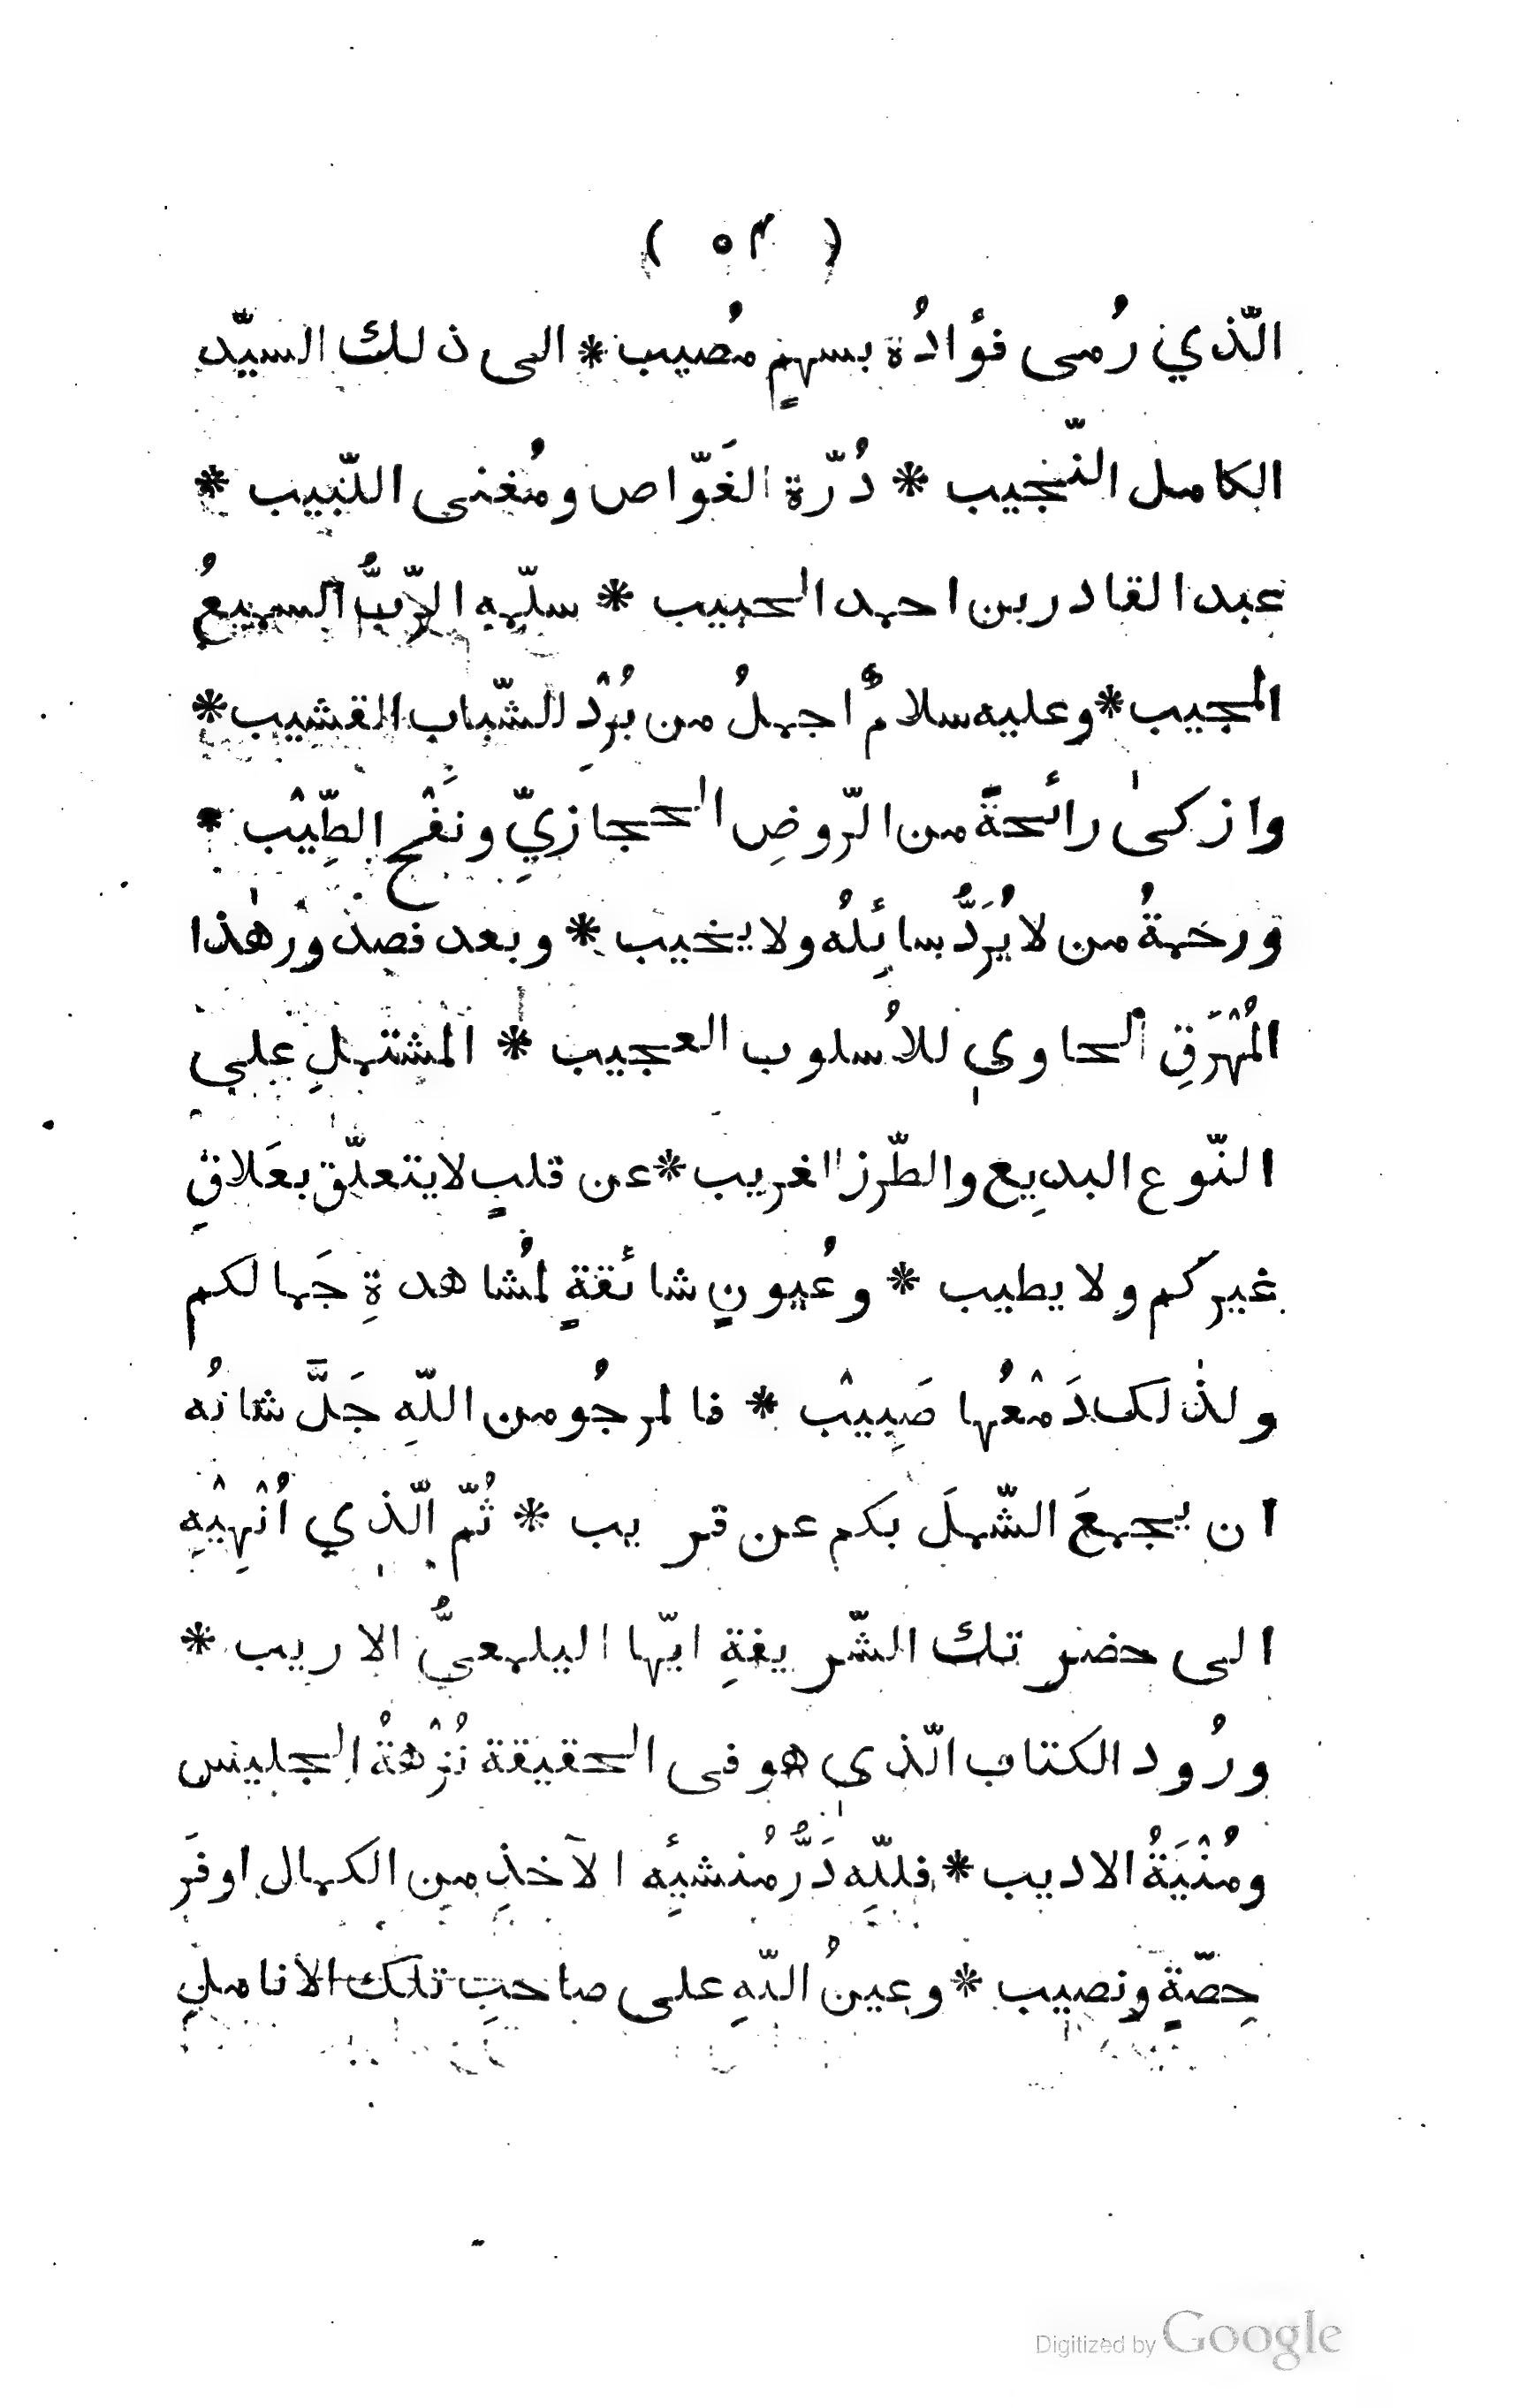 ( ٥٣ )
الّذي رُمى فؤادُه بسهمٍ مُصيب * الى ذلك السيّد
الكامل النّجيب * دُرّة الغَوّاص ومُغنى اللّبيب *
عبد القادر بن احمد الحبيب * سلّمه الرّبُّ السميعُ
المجيب * وعليه سلامٌ اجملُ من بُرْدِ الشّباب القشيب *
وازكىٰ رائحةً من الرّوضِ الحجازيِّ ونَفْحِ الطِّيْب *
ورحمةُ من لا يُرَدُّ سائِلُه ولا يخيب * وبعد فصدورُ هٰذا
المُهْرَقِ الحاوي للاُسلوب العجيب * المشتملِ على
النّوع البديع والطّرز الغريب * عن قلبٍ لا يتعلّق بعَلاقِ
غيركم ولا يطيب * وعُيونٍ شائقةٍ لمُشاهدةِ جَمالكم
ولذٰلك دَمْعُها صَبِيْب * فالمرجُو من اللّهِ جَلَّ شانُه
ان يجمعَ الشّملَ بكم عن قريب * ثُمّ الّذي اُنْهِيْهِ
الى حضرتك الشّريفةِ ايّها اليلمعيُّ الاريب *
ورُود الكتاب الّذي هو فى الحقيقة نُزْهةُ الجليس
ومُنْيَةُ الاديب * فللّهِ دَرُّ مُنشئِه الآخذِ من الكمال اوفَر
حِصّةٍ ونصيب * وعينُ اللّهِ على صاحبِ تلك الانامل
Digitized by Google